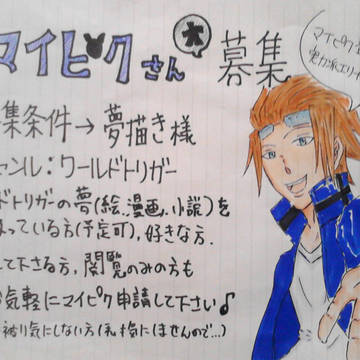 マイピクさん大募集
マイピク
集条件→夢描き様
ャンル:ワールドトリガー
ドトリガーの夢(絵、漫画、小説)を
っている方(予定可)、好きな方.
して下さる方、閲覧のみの方も
気軽にマイピク申請して下さい♪
被り気にしない方(私も気にしませんので…)